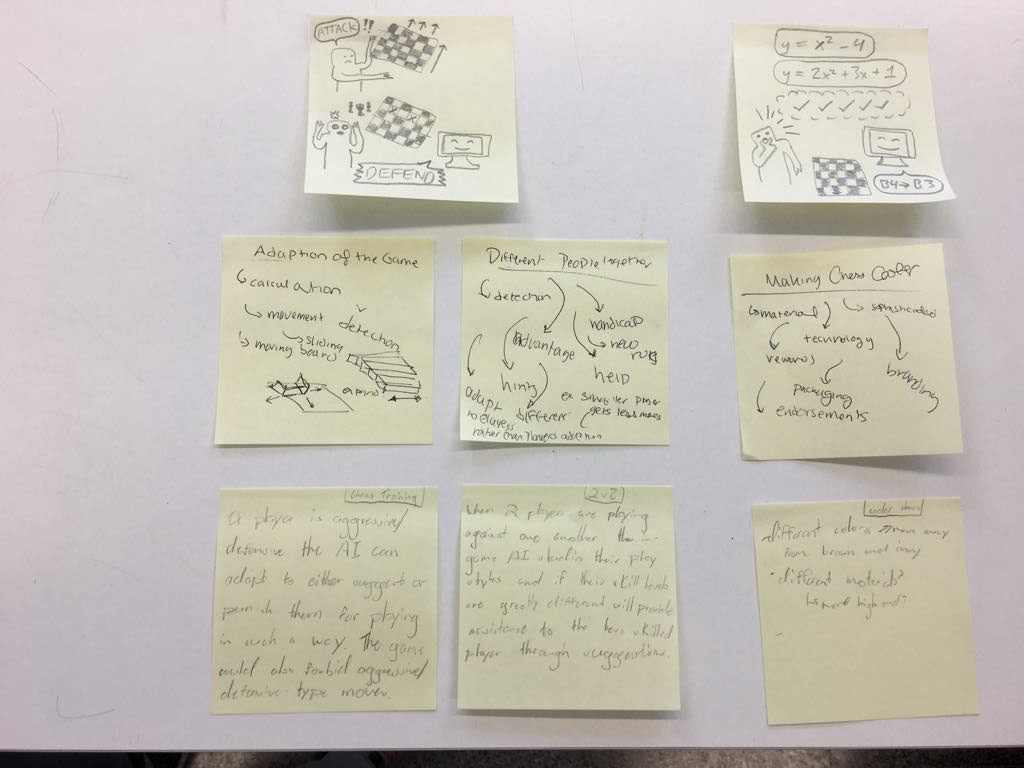 ATTACK !!
DEFEND
y = x² - 4
y = 2x² + 3x + 1
✓ ✓ ✓ ✓ ✓
B4 → B3
Adaption of the Game
calculation
movement
detection
sliding
moving board
expand
Different People together
detection
handicap
advantage
new rules
hints
help
adapt
to players
different
rather than players adaption
ex
player
gets less moves
Making Chess Cooler
material
sophisticated
technology
rewards
branding
packaging
endorsements
Chess Training
If player is aggressive/
defensive the AI can
adapt to either suggest or
punish them for playing
in such a way. The game
could also forbid aggressive/
defensive type moves.
2v2
When 2 players are playing
against one another the in-
game AI studies their play
styles and if their skill levels
are greatly different will provide
assistance to the less skilled
player through suggestions.
different colors → move away
from brown and ivory
- different materials?
↳ more high end?